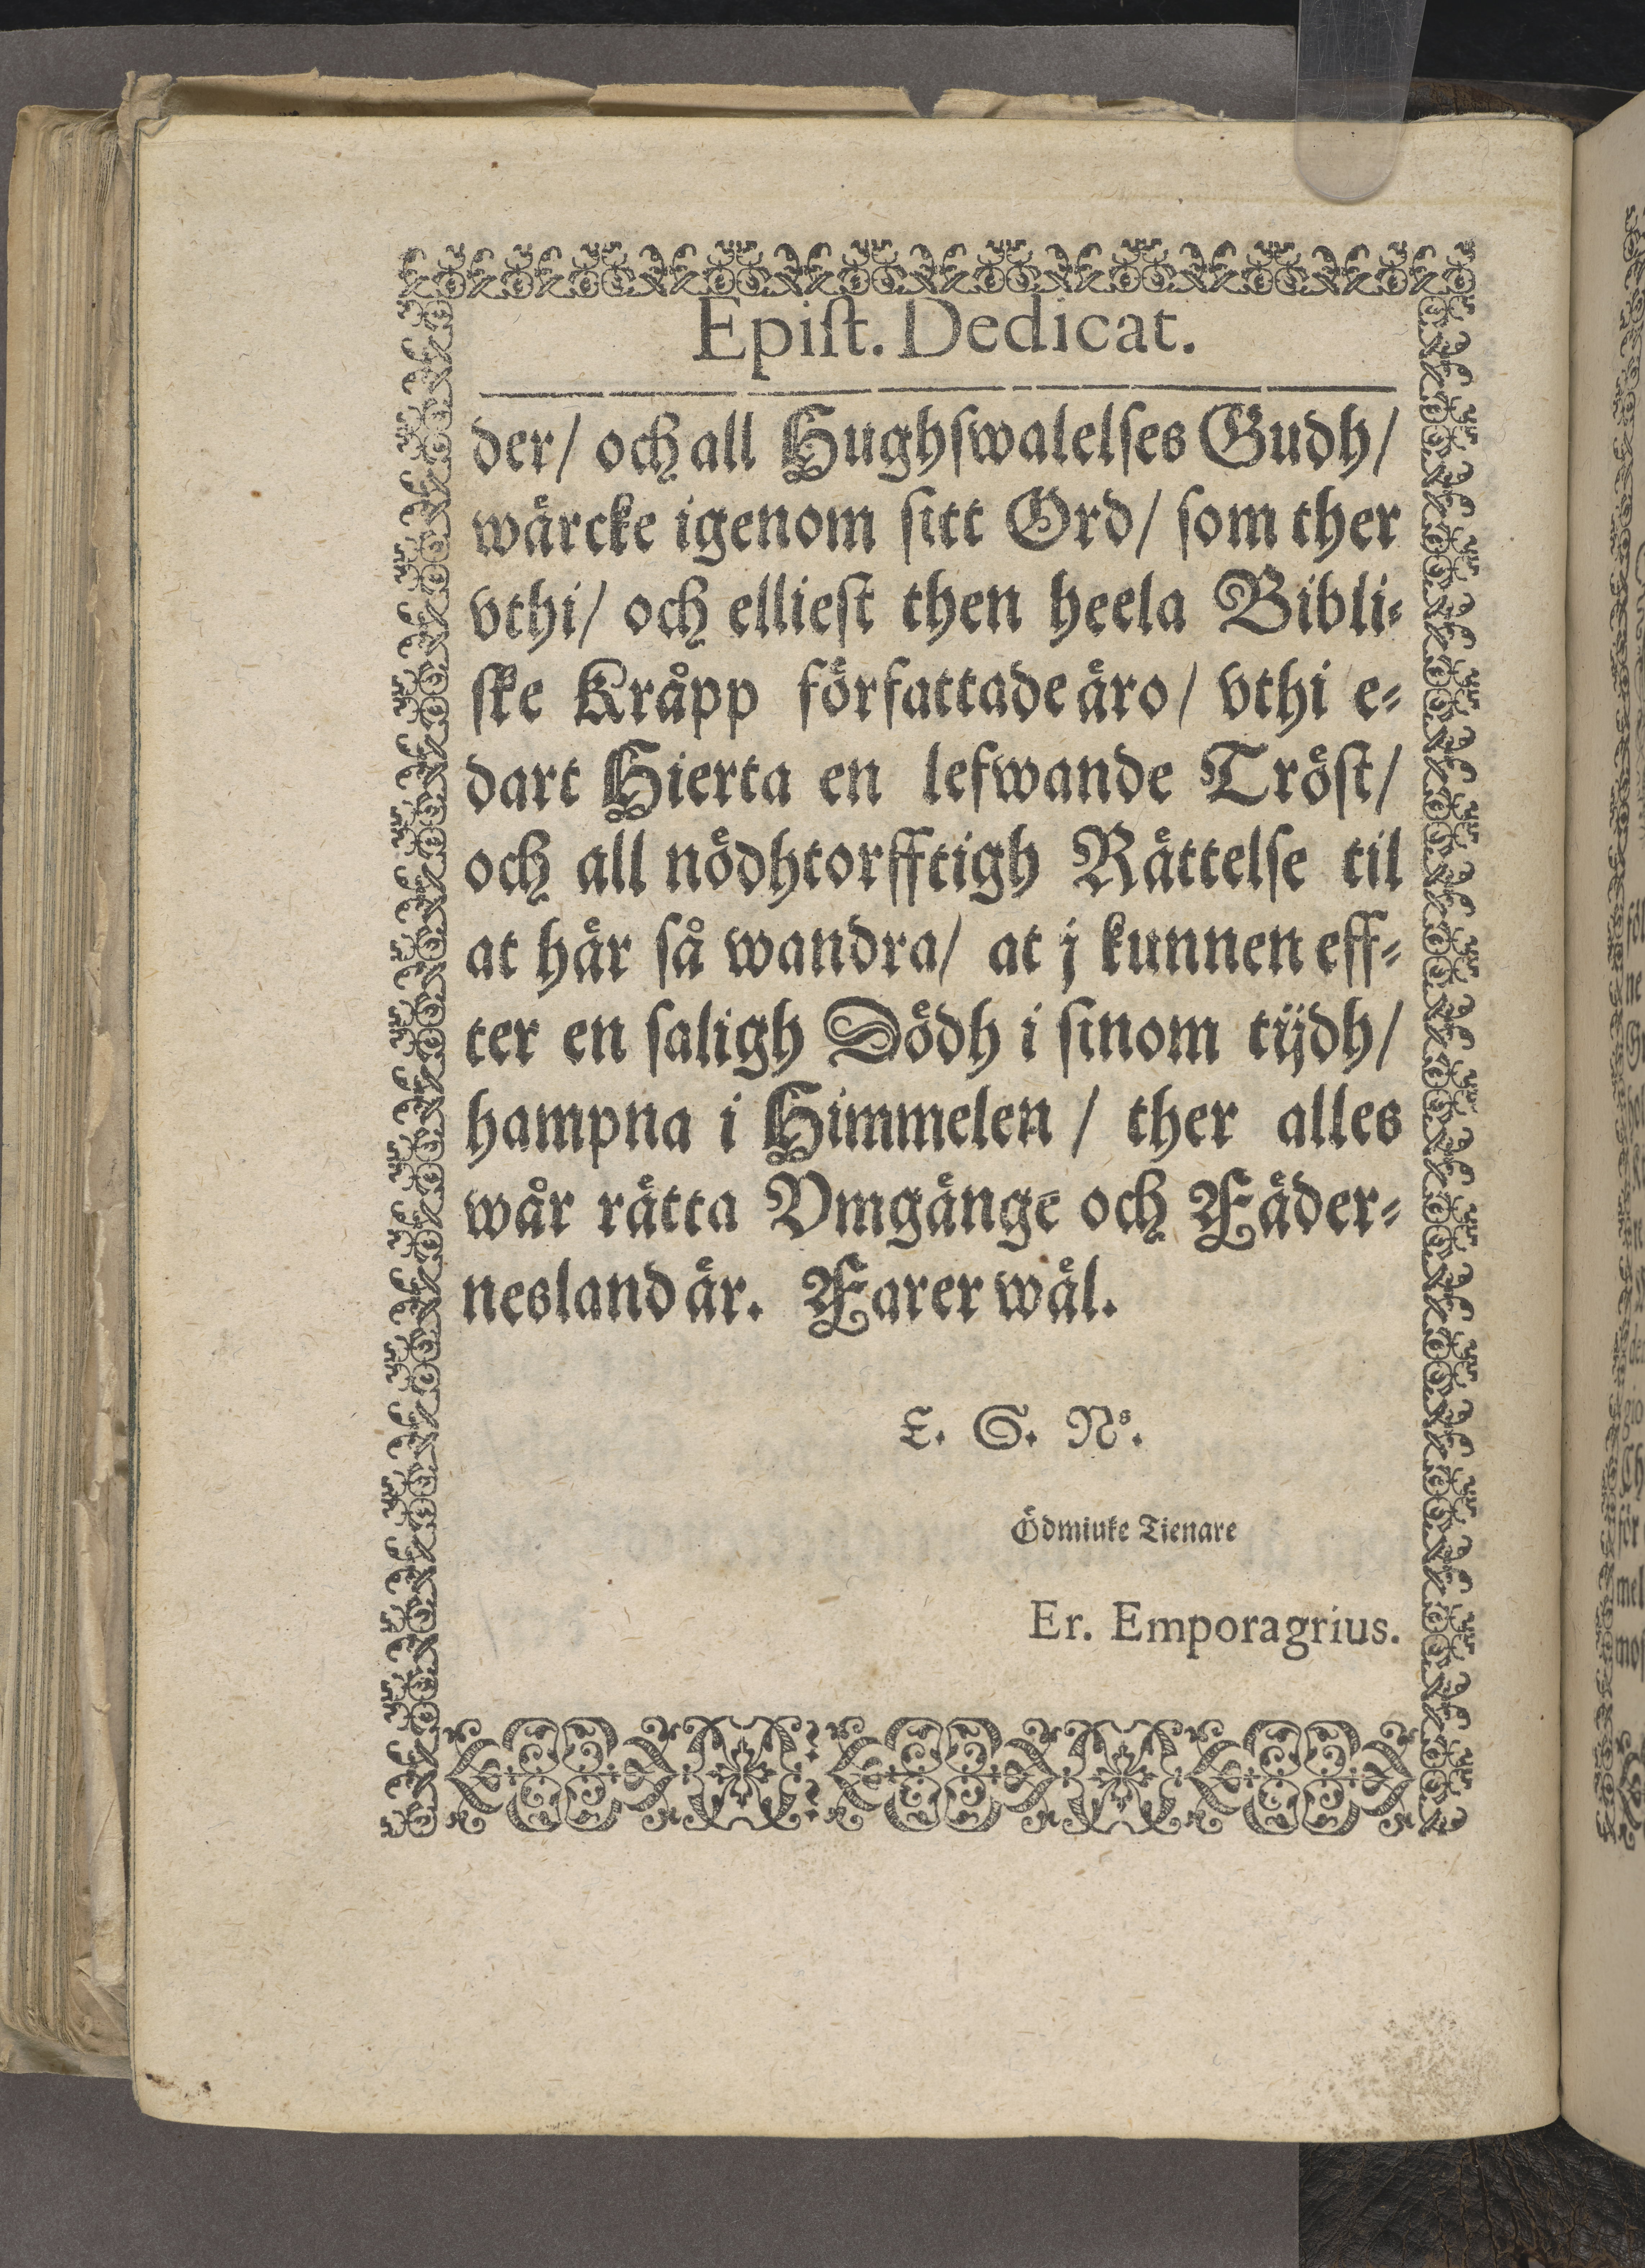 Epiſt. Dedicat.
der/ och all Hughſwalelſes Gudh/
wärcke igenom ſitt Ord/ ſom ther
vthi/ och ellieſt then heela Bibli⸗
ſke Kråpp författade äro/ vthi e⸗
dart Hierta en lefwande Tröſt/
och all nödhtorfftigh Rättelſe til
at här ſå wandra/ at j kunnen eff⸗
ter en ſaligh Dödh i ſinom tijdh/
hampna i Himmelen / ther alles
wår rätta Vmgänge och Fäder⸗
nesland är. Farer wäl.
E. S. Ns.
Ödmiuke Tienare
Er. Emporagrius.